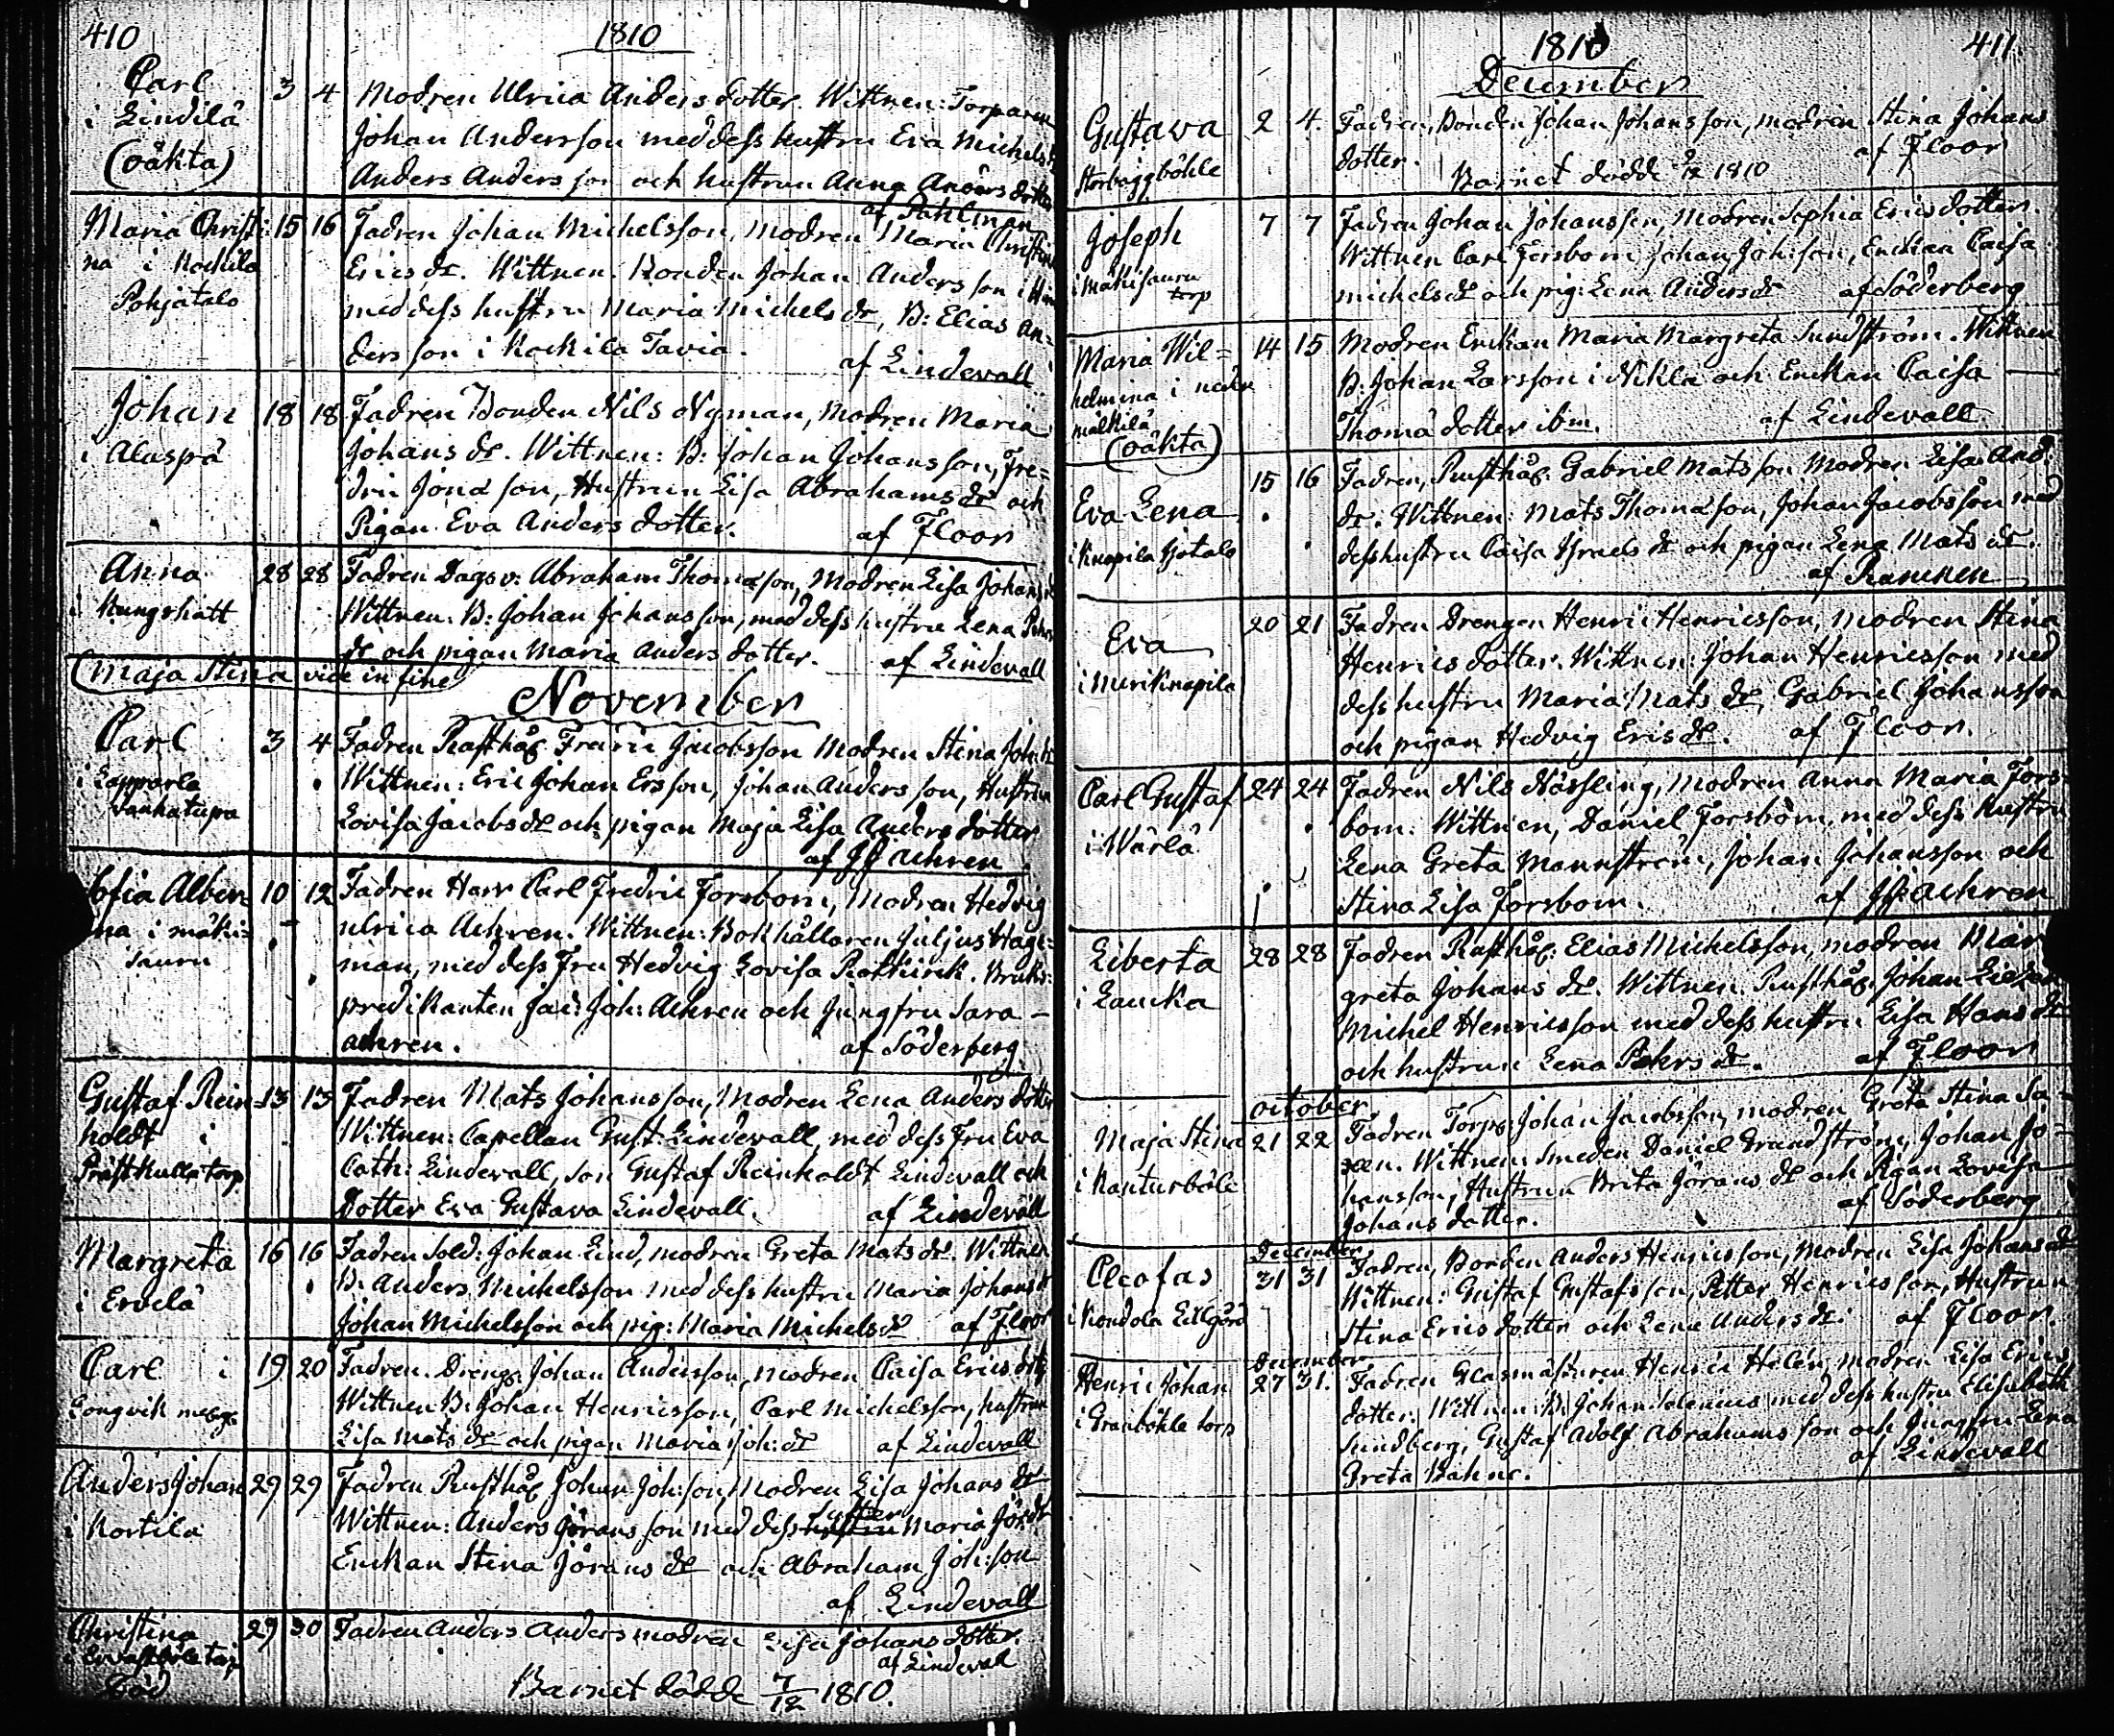 410
1810
Carl 3 4 Modren Ulrica Anders dotter. Wittnen: Torparen
i Lindilä Johan Andersson med dess hustru Eva Michels
(oäkta) Anders Andersson och hustrun Anna Anders dotter
af Pahlman
Maria Christi: 15 16 Fadren Johan Michelsson, Modren Maria Christina
na i Kockila Erics dr. Wittnen. Bonden Johan Andersson i
Pohjatalo med dess hustru Maria Michels dr, B: Elias An=
dersson i Kockila Tavia. af Lindevall
Johan 18 18 Fadren Bonden Nils Nyman, Modren Maria
i Alaspä Johans dr. Wittnen: B: Johan Johansson, Fre=
dric Jonasson, Hustrun Lisa Abrahams dr och
Pigan Eva Anders dotter. af Floor
Anna 28 28 Fadren Dagsv: Abraham Thomasson, Modren Lisa Johans
i Kungshatt Wittnen. B: Johan Johansson, med dess hustru Lena
dr och pigan Maria Anders dotter. af Lindevall
(Maja Stina vide in fine)
November
Carl 3 4 Fadren Rusthåll Fredric Jacobsson Modren Stina Joh: dr
i Lapparla Wittnen: Eric Johan Ersson, Johan Andersson, Hustrun
Vanhatupa Lovisa Jacobs dr och pigan Maja Lisa Anders dotter
af JJ Achren
Sofia Alber= 10 12 Fadren Herr Carl Fredric Forsbom, Modren Hedvig
na i mäki= Ulrica Achren. Wittnen: Bokhållaren Juljus Hag=
sauru man, med dess Fru Hedvig Lovisa Rothkirck. Bruks:
predikanten Jac: Joh: Achren och Jungfru Sara
Achren. af Söderberg
Gustaf Rein= 13 13 Fadren Mats Johansson, Modren Lena Anders dotter
holdt i Wittnen: Capellan Gust: Lindevall, med dess Fru Eva
Prästkulla torp Cath: Lindevall, son Gustaf Reinholdt Lindevall och
Dotter Eva Gustava Lindevall. af Lindevall
Margreta 16 16 Fadren Sold: Johan Lind, modren Greta Mats dr. Wittnen
i Ervelä B: Anders Michelsson med dess hustru Maria Johans dr
Johan Michelsson och pig: Maria Michels dr af Floor
Carl i 19 20 Fadren. Dreng: Johan Andersson, modren Caisa Erics dotter
Longvik Wittnen B: Johan Henricsson, Carl Michelsson, hustrun
Lisa Mats dr och pigan Maria Joh: dr af Lindevall
Anders Johan 29 29 Fadren Rusthåll Johan Joh:son, Modren Lisa Johans dr
i Kortila Wittnen: Anders Göransson med dess syster Maria Jör dr
Enckan Stina Jörans dr och Abraham Joh:son
af Lindevall
Christina 29 30 Fadren Anders Anders modren Lisa Johans dotter.
af Lindevall
Död Barnet dödde 7/12 1810.
1810
411
December
Gustava 2 4. Fadren, Bonden Johan Johansson, modren Stina Johans
Storbäggböhle dotter. af Floor
Barnet dödde 9/12 1810
Joseph 7 7 Fadren Johan Johansson, Modren Sophia Erics dotter.
i mäkisauru Wittnen Carl Forsbom, Johan Joh:son, Enckan Caisa
torp Michels dr och pig: Lena Anders dr af Söderberg
Maria Wil= 14 15 Modren Enckan Maria Margreta Sundström. Wittnen
helmina i neder B: Johan Larsson i Nikla och Enckan Caisa
mälkilä Thoma dotter ibm. af Lindevall
(oäkta)
Eva Lena 15 16 Fadren, Rusthåll: Gabriel Matsson Modren Lisa And:
i Knapila Isotalo dr. Wittnen: Mats Thomasson, Johan Jacobsson med
dess hustru Caisa Israels dr och pigan Lena Mats dr.
af Rancken
Eva 20 21 Fadren Drengen Henric Henricsson, modren Stina
i Meriknapila Henrics dotter. Wittnen: Johan Henricsson med
dess hustru Maria Mats dr, Gabriel Johansson
och pigan Hedvig Erics dr. af Floor.
Carl Gustaf 24 24 Fadren Nils Nässling, modren Anna Maria Fors=
i Wärlä bom: Wittnen, Daniel Forsbom, med dess hustru
Lena Greta Mannström, Johan Johansson och
Stina Lisa Forsbom. af JJ Achren
Liberta 28 28 Fadren Rusthåll: Elias Michelsson, modren Mar
i Laucka greta Johans dr. Wittnen. Rusthåll: Johan
Michel Henricsson med dess hustru Lisa Hans dr
och hustrun Lena Peters dr. af Floor
october
Maja Stina 21 22 Fadren Torp: Johan Jacobsson, modren Greta Stina Sa=
i Kanturböle xen. Wittnen: Smeden Daniel Grundström, Johan Jo=
hansson, Hustrun Brita Jörans dr och Pigan Lovisa
Johans dotter. af Söderberg
December
Cleofas 31 31 Fadren, Bonden Anders Henricsson, Modren Lisa Johans dr
i Kondola Lillgård Wittnen: Gustaf Gustafsson, Petter Henricsson, Hustrun
Stina Erics dotter och Lena Anders dr. af Floor.
December
Henric Johan 27 31. Fadren Glasmästaren Henric Helén, modren Lisa Erics
i Granböhle torp dotter. Wittnen: B: Johan Selenius med dess hustru Elisabeth
Sundberg, Gustaf Adolf Abrahamsson och Jungfru Lena
Greta Bahne. af Lindevall